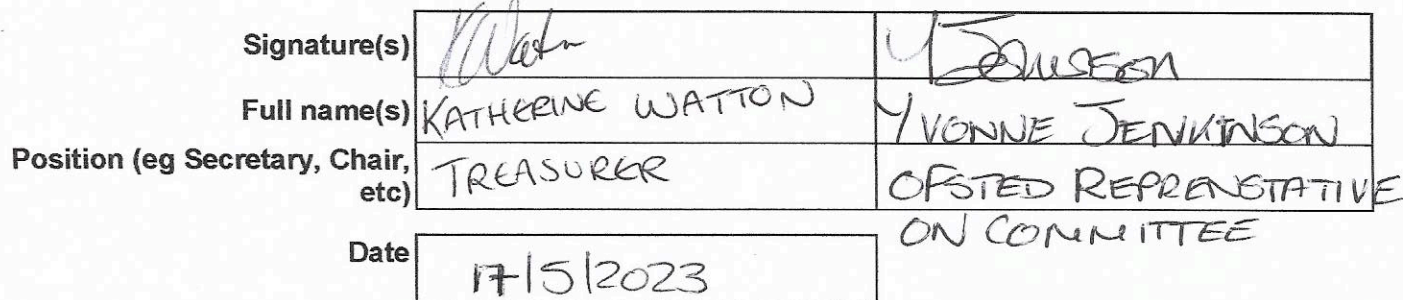 Signature(s) KWatton YJenkinson
Full name(s) KATHERINE WATTON YVONNE JENKINSON
Position (eg Secretary, Chair, TREASURER OFSTED REPRENSTATIVE
etc) ON COMMITTEE
Date 17/5/2023